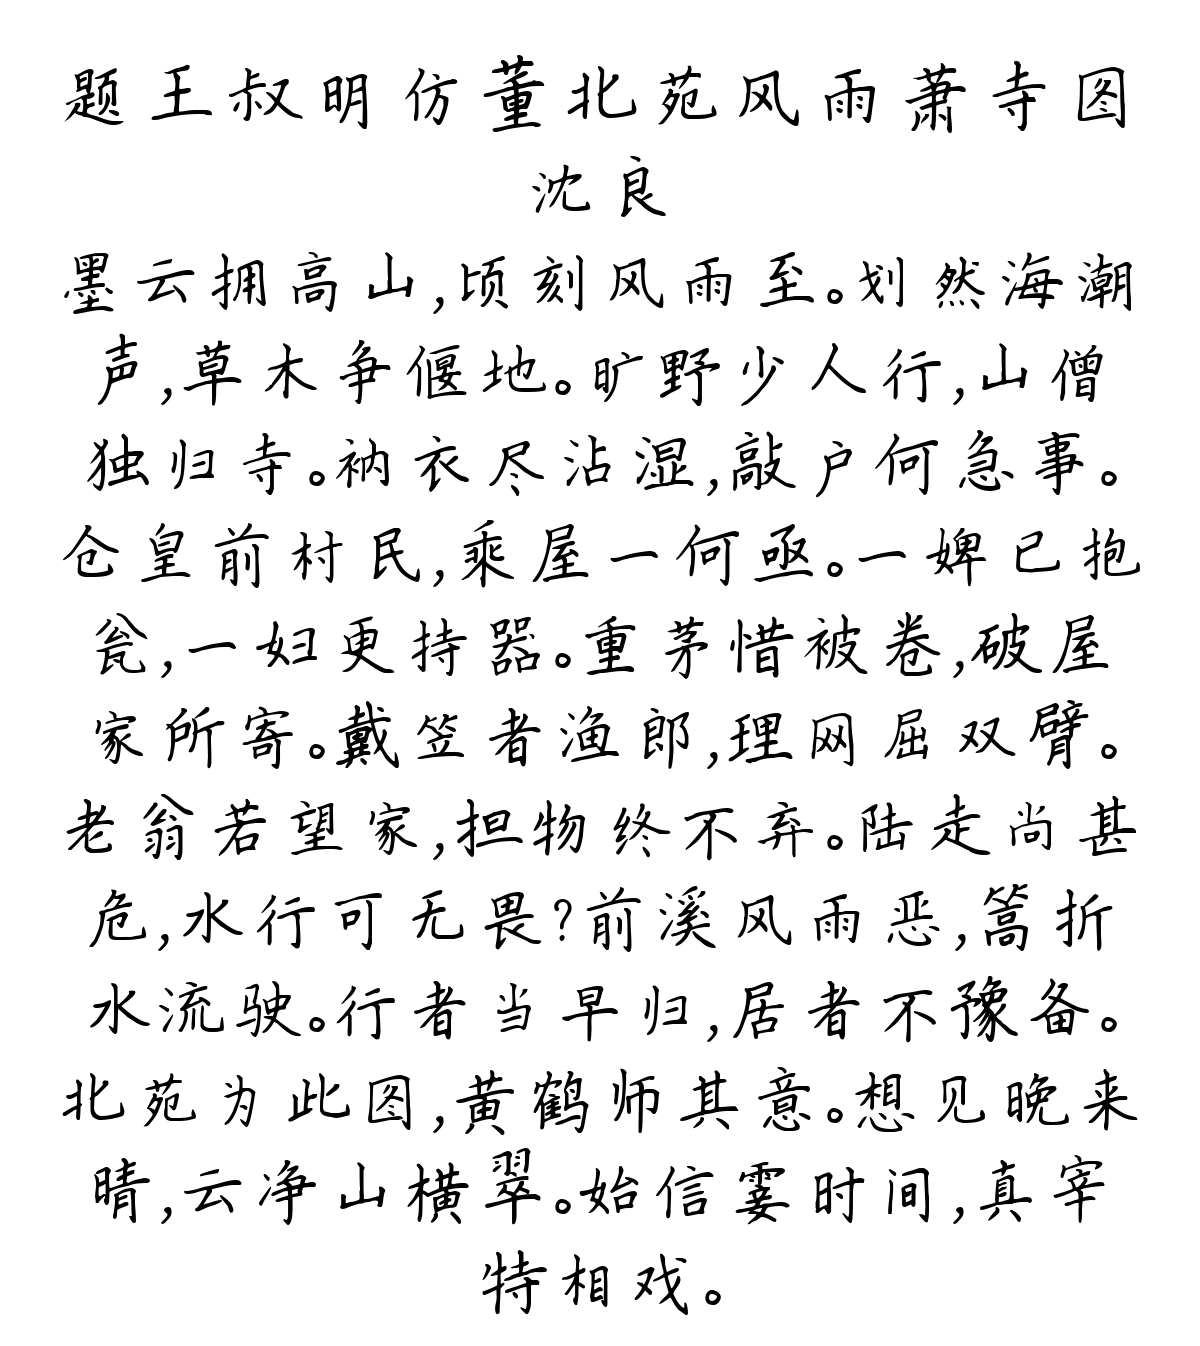 题王叔明仿董北苑风雨萧寺图
沈良
墨云拥高山,顷刻风雨至。划然海潮
声,草木争偃地。旷野少人行,山僧
独归寺。衲衣尽沾湿,敲户何急事。
仓皇前村民,乘屋一何亟。一婢已抱
瓮,一妇更持器。重茅惜被卷,破屋
家所寄。戴笠者渔郎,理网屈双臂。
老翁若望家,担物终不弃。陆走尚甚
危,水行可无畏?前溪风雨恶,篙折
水流驶。行者当早归,居者不豫备。
北苑为此图,黄鹤师其意。想见晚来
晴,云净山横翠。始信霎时间,真宰
特相戏。